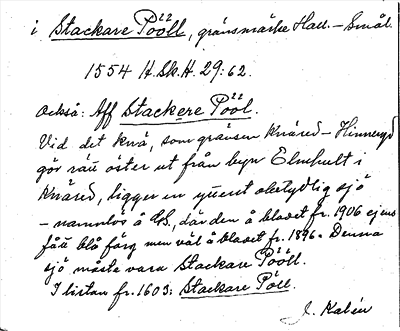 i Stackare Pööll, gränsmärke Hall. – Smål.
1554 H.Sk.H. 29:62.
också: Aff Stackere Pööl.
Vid det knä, som gränsen Knäred – Hinneryd
gör rätt öster ut från byn Elmhult i
Knäred, ligger en ytterst obetydlig sjö
– namnlös å GS, där den å bladet fr. 1906 ej ens
fått blå färg men väl å bladet fr. 1896. Denna
sjö måste vara Stackare Pööll.
I listan fr. 1603: Stackare Pöll.
J. Kalén